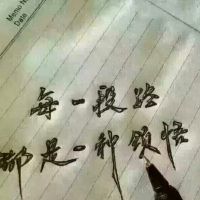 Memo No.
Date
每一段经
都是一种领悟